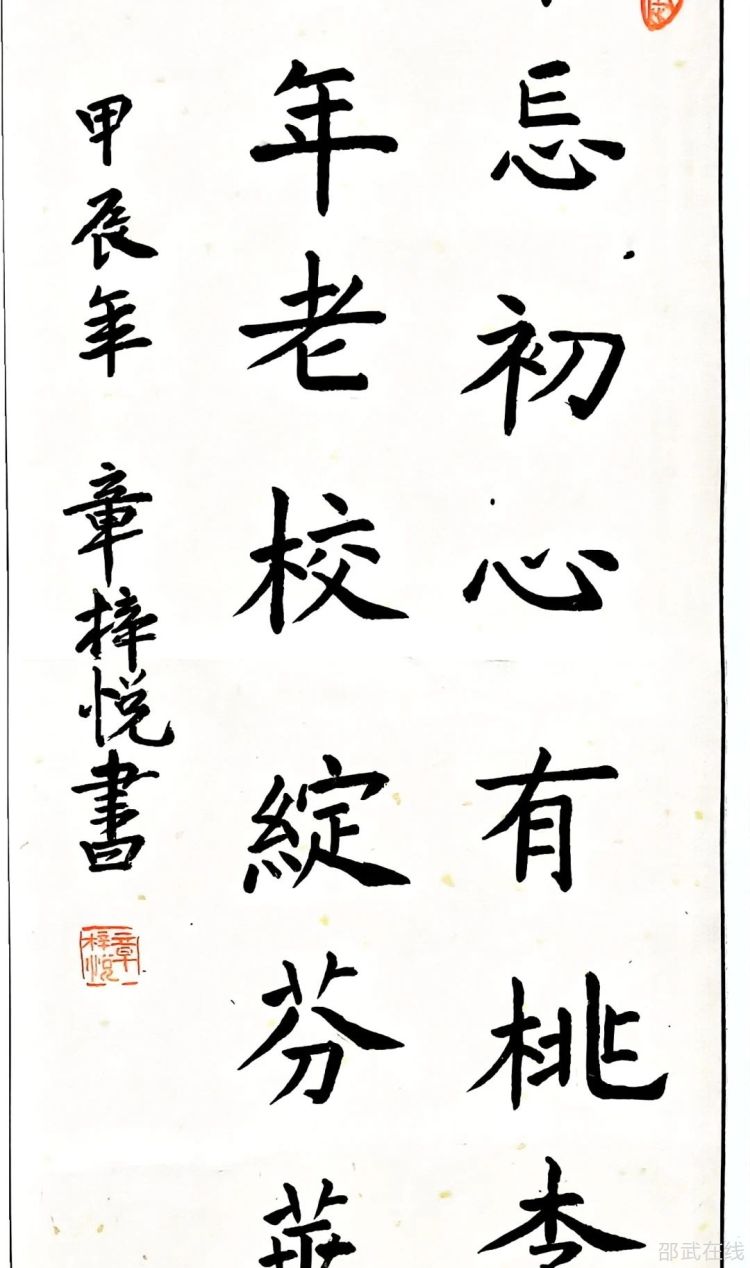 忘初心有桃李
年老校綻芬華
甲辰年 章梓悦書
章梓悦
邵武在线